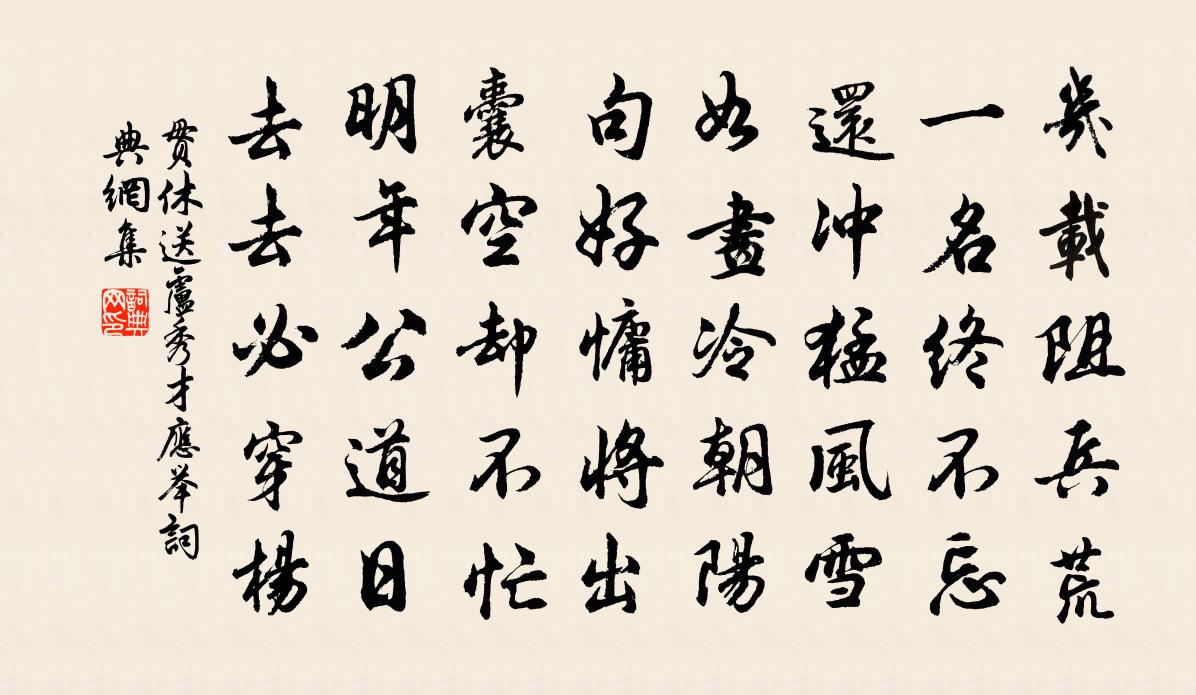 幾載阻兵荒
一名終不忘
還冲猛風雪
如畫冷朝陽
句好慵將出
囊空却不忙
明年公道日
去去必穿楊
貫休送盧秀才應举詞
典網集
詞典
网印